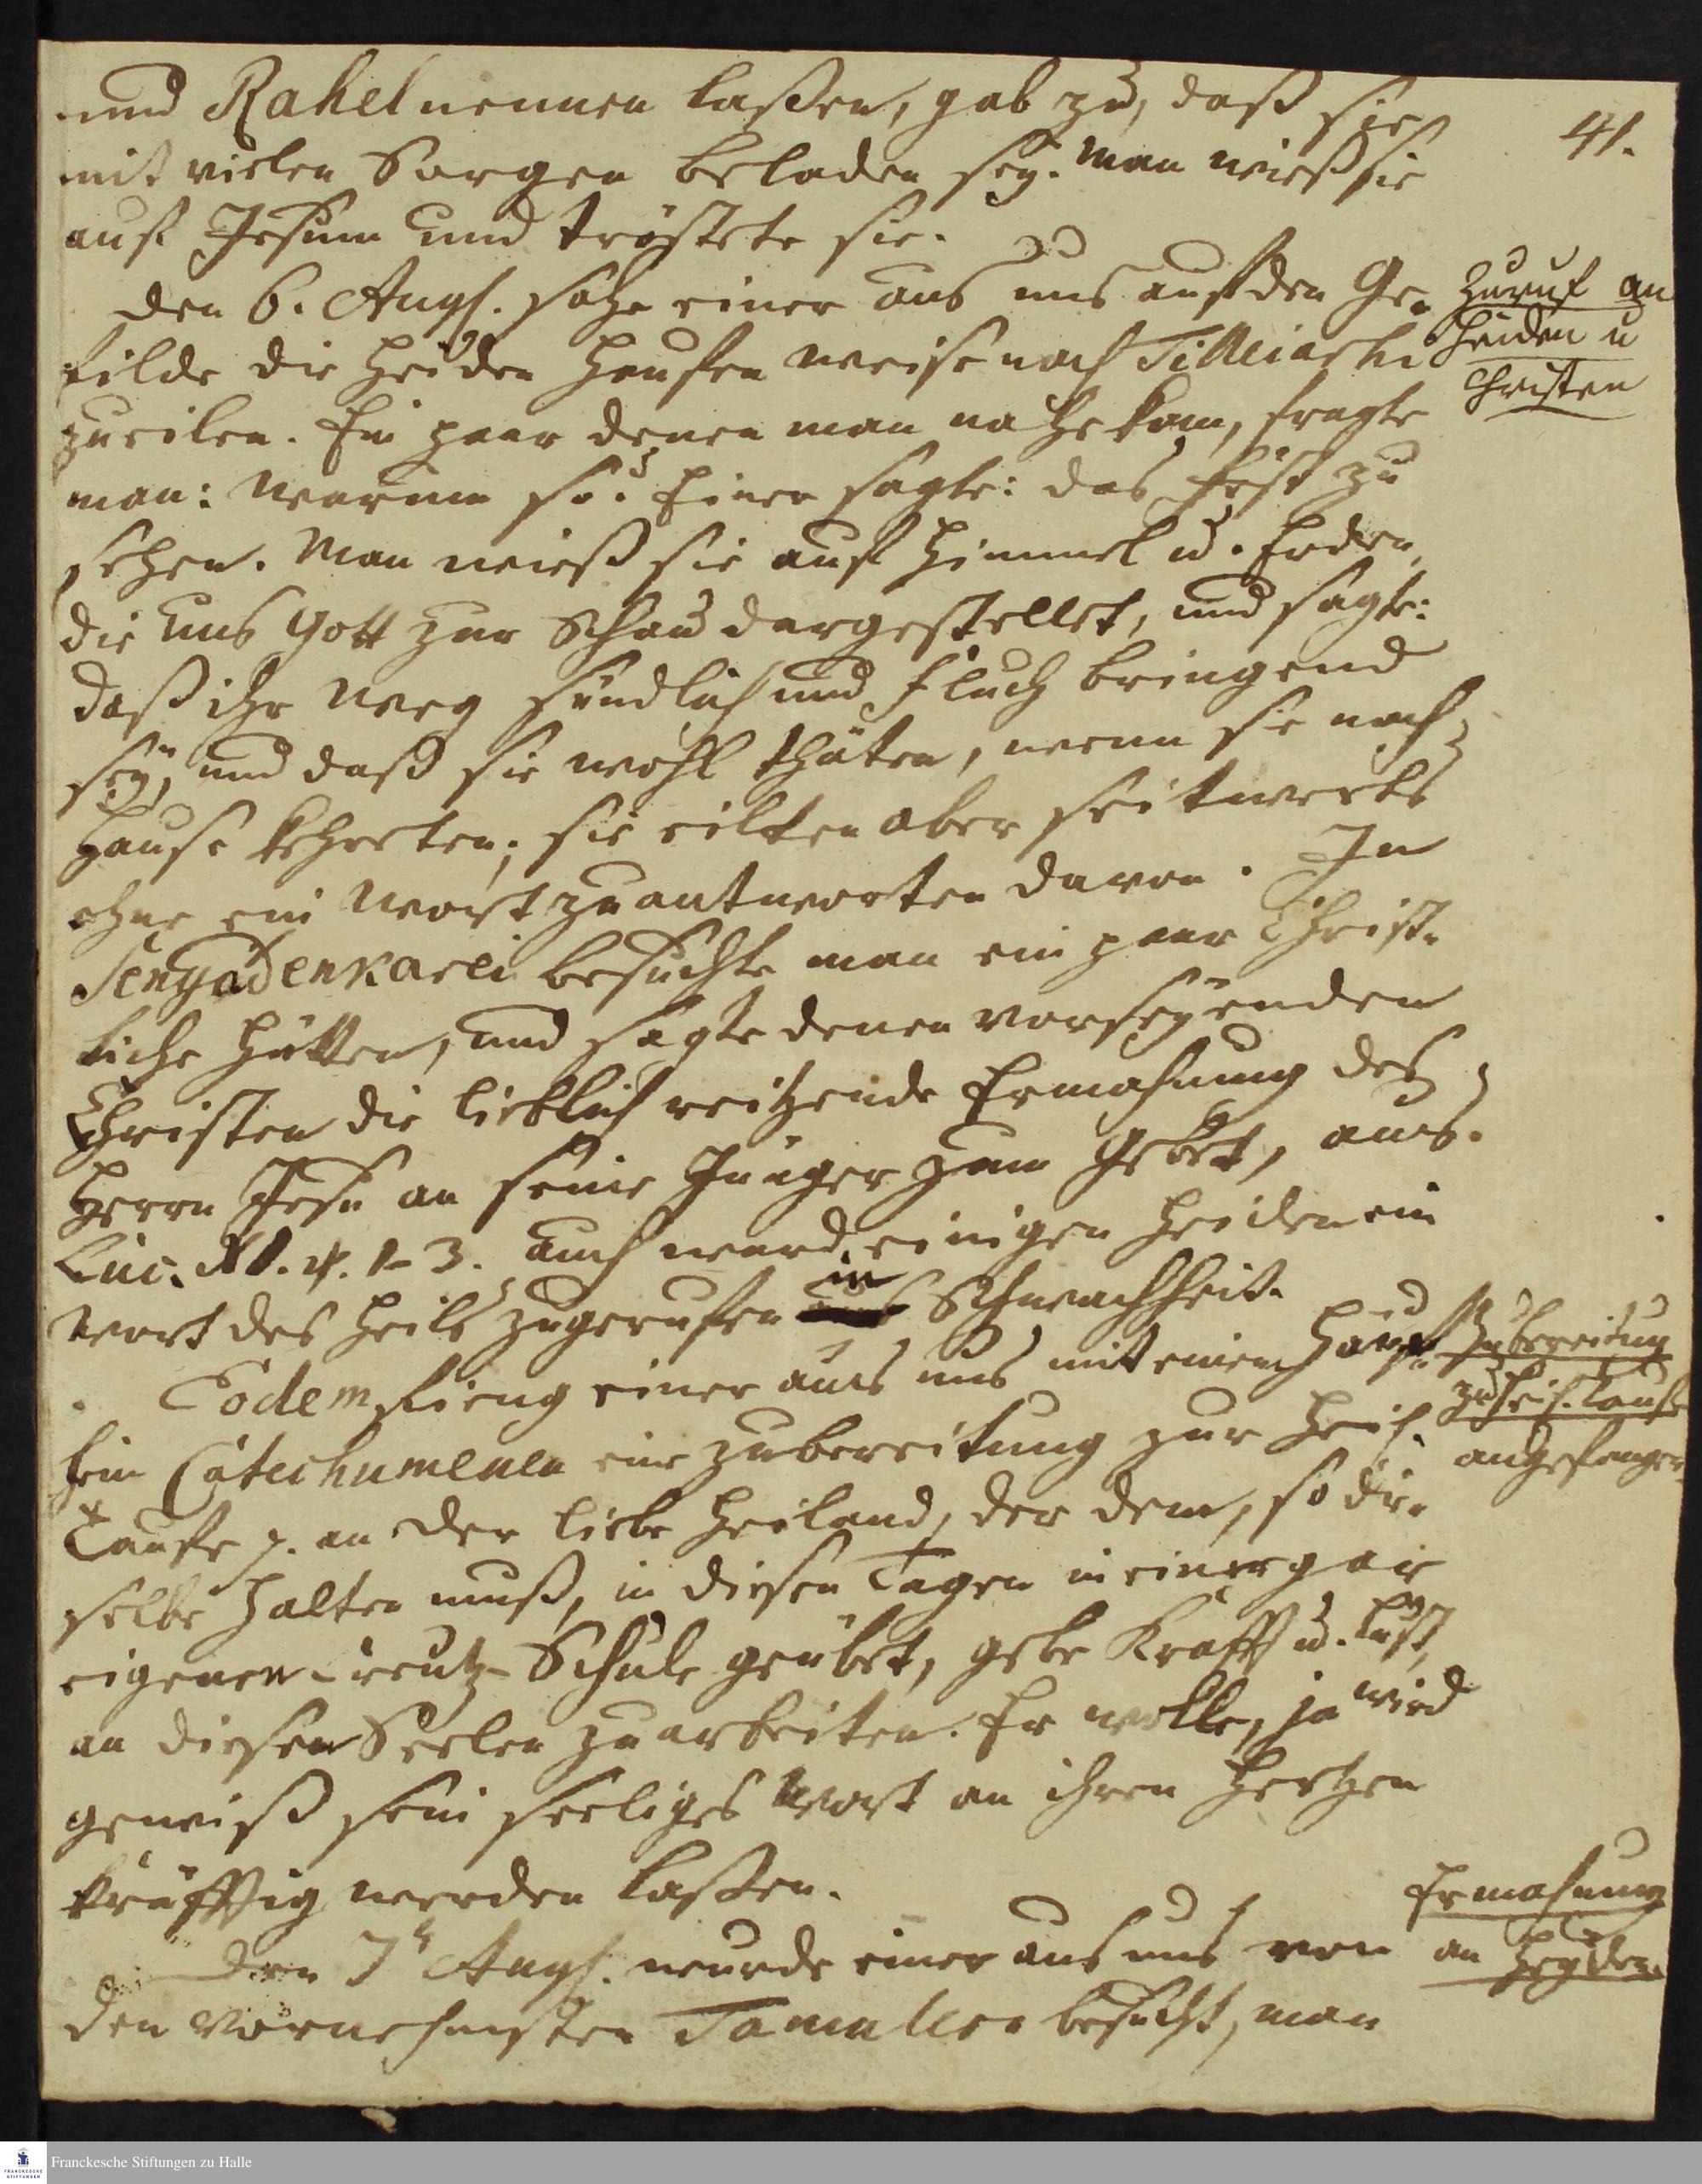 41.
und Rahel nennen laßen, gab zu, daß sie
mit vielen Sorgen beladen sey. Man wieß sie
auf Jesum und tröstete sie.
Zuruf an
Heiden u
Christen
den 6. Aug. sahe einer aus uns auf den Ge-
filde die Heiden Haufen weise nach Tilleiarhi
zueilen. Ein paar denen man nahe kam, fragte
man: warum so? Einer sagte: das Fest zu
sehen. Man wieß sie auf Himmel u. Erden,
die uns Gott zur Schau dargestellet, und sagte:
daß ihr Weg sündlich und Fluch bringend
sey, und daß sie wohl thäten, wenn sie nach
Hause kehrten; sie eilten aber seitwerts
ohne ein Wort zu antworten davon. In
Sengadenkarei besuchte man ein paar Christ-
liche Hütten, und sagte denen vorseyenden
Christen die lieblich reitzende Ermahnung des
Herrn Jesu an seine Jünger zum Gebet, aus
Luc. XI. v. 1-3. Auch ward einigen Heiden ein
Wort des Heils zugerufen in Schwachheit.
Zubereitung
zur heil. Taufe
angefangen
Eodem fieng einer aus uns mit einem Häuf-
lein Catechumenen eine Zubereitung zur Heil.
Taufe p. an Der liebe Heiland, der dem, so die-
selbe halten muß, in diesen Tagen in einer gar
eigenen Creutz-Schule geübet, gebe Krafft u. Lust,
an diesen Seelen zu arbeiten. Er wolle, ja wird
gewiß sein seeliges Wort an ihren Hertzen
kräfftig werden laßen.
Ermahnung
an Heyden
Den 7t Aug. wurde einer aus uns von
den vornehmsten Tamulern besucht, man
Franckesche Stiftungen zu Halle